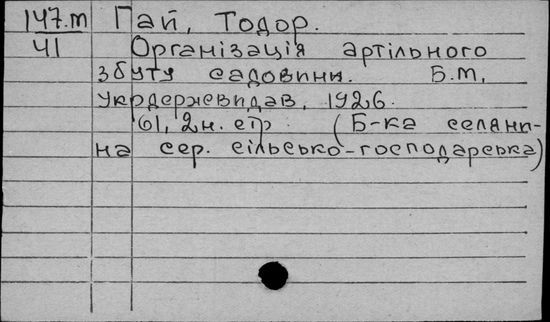 147.m Гай, Тодор.
41 Організація артільного
збуту садовини. Б.М,
Укрдержвидав, 1926.
61, 2 н. стр. (Б-ка селяни-
на сер. сільсько-господарська)